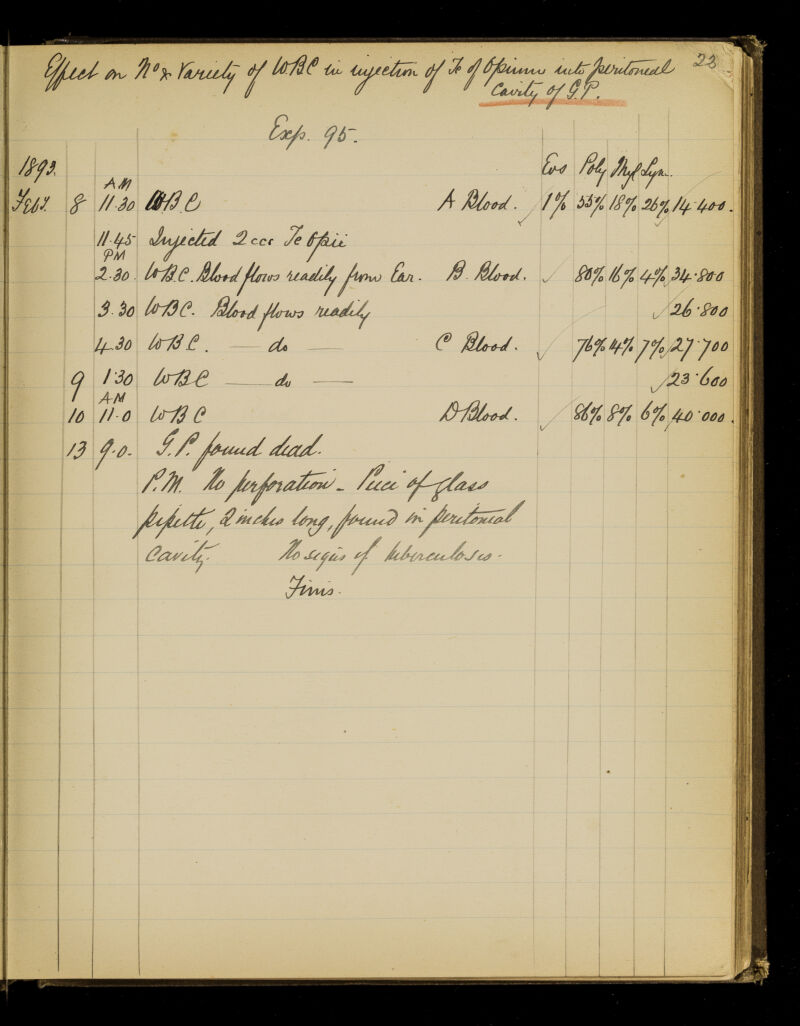 22
Effect on No & Variety of WBC in injection of Tr of Opium into peritoneal
cavity of G.P.
Exp. 95.
1893. Eos Poly Myl Lym.
AM
Feby. 8 11.30 WBC A Blood. 1% 55% 18% 26% 14.400.
11.45 Injected 2 ccs Tr Opii
PM
2.30. WBC. Blood flows readily from Ear. B. Blood. 80% 16% 4% 34.800
3.30 WBC. Blood flows readily 26.800
4.30 WBC. — do — C Blood. 76% 14% 7% 27.700
9 1.30 WBC — do — 23.600
AM
10 11.0 WBC D Blood. 86% 8% 6% 40.000.
13 9.0. G.P. found dead.
P.M. No perforation - Piece of glass
pipette, 2 inches long, found in peritoneal
cavity. No signs of tuberculosis.
Finis.